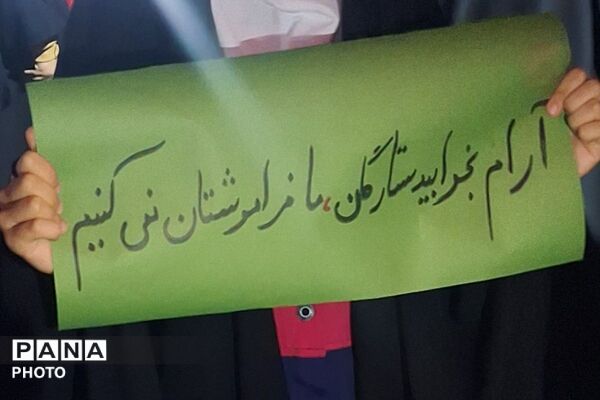 آرام بخوابید ستارگان، ما فراموشتان نمی کنیم
PANA
PHOTO